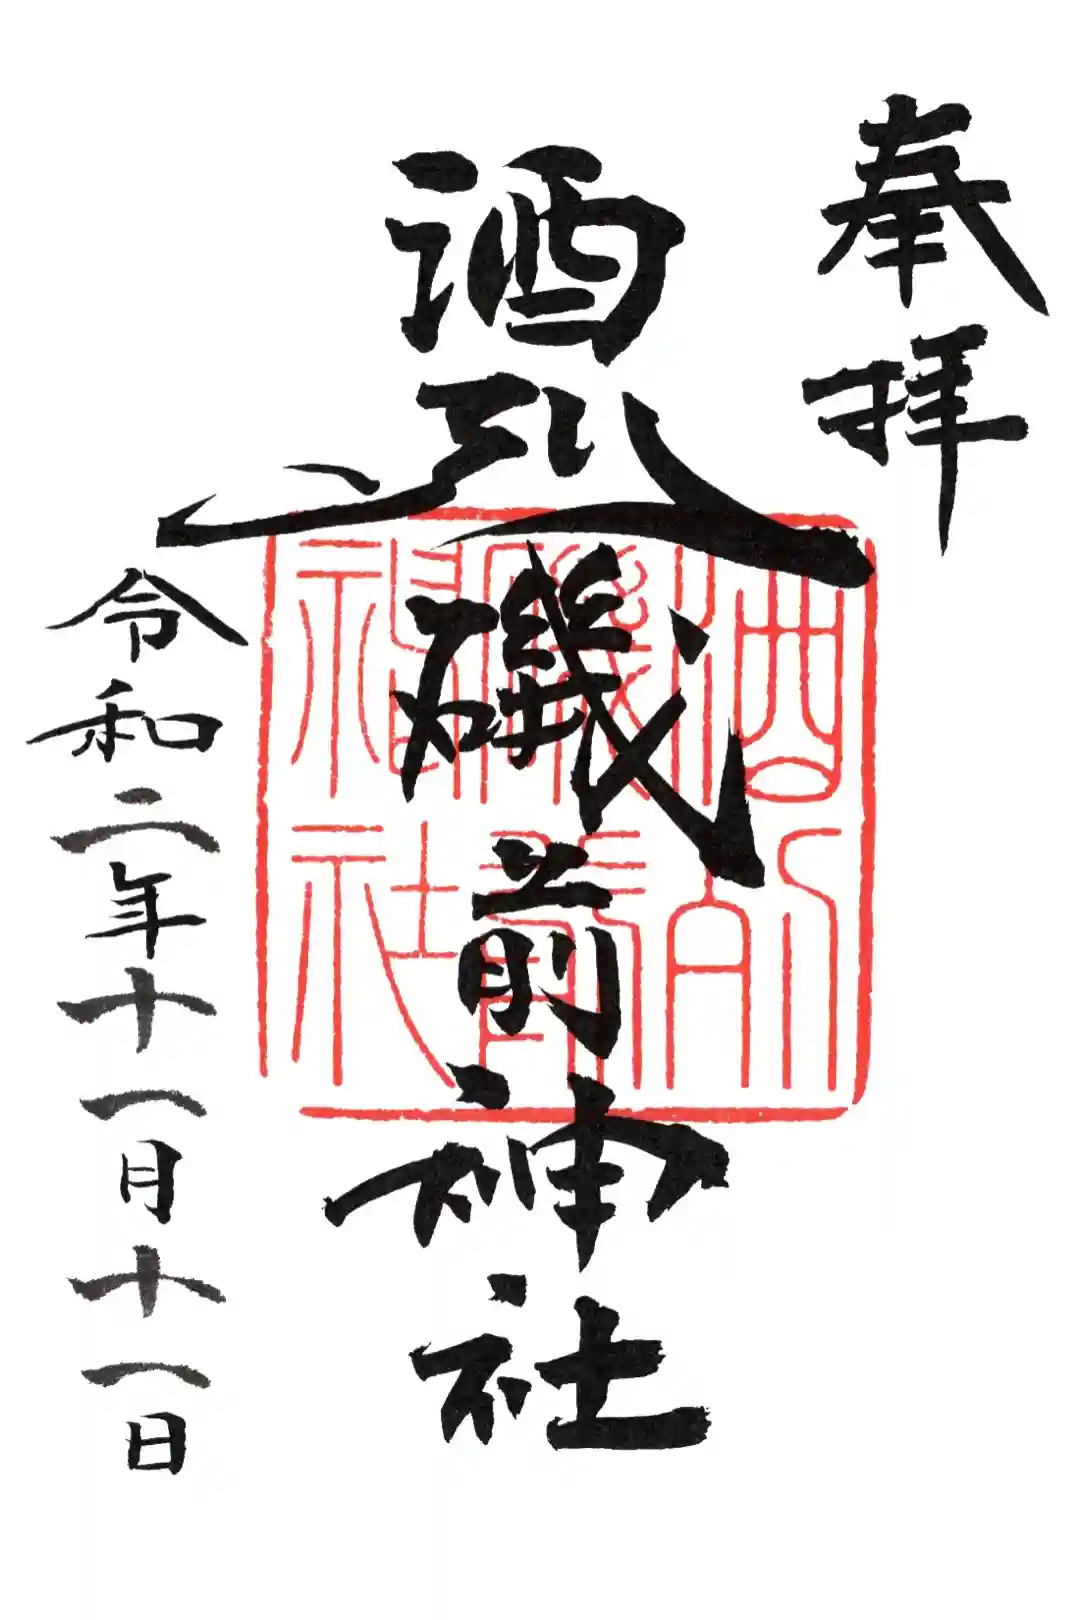 奉拝
酒列磯前神社
令和二年十一月十一日
酒列
磯前
神社